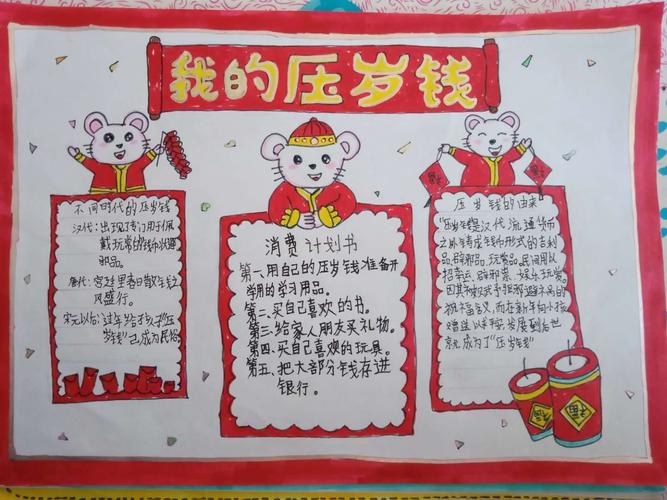 我的压岁钱
不同时代的压岁钱
汉代：出现了专门用于佩
戴玩赏的钱币状避
邪品。
唐代：宫廷里春日散钱之
风盛行。
宋元以后：过年给孩子"压
岁钱"已成为民俗
消费计划书
第一、用自己的压岁钱准备开
学用的学习用品。
第二、买自己喜欢的书。
第三、给家人朋友买礼物。
第四、买自己喜欢的玩具。
第五、把大部分钱存进
银行。
压岁钱的由来
汉代流通货币
之外铸成钱币形式的吉利
品,辟邪品,玩赏品。民间用以
招幸运、辟邪祟、娱乐玩赏。
避不吉的
祝福含义,而在新年向小孩
赠送 发展到后世
就成为了"压岁钱"
福